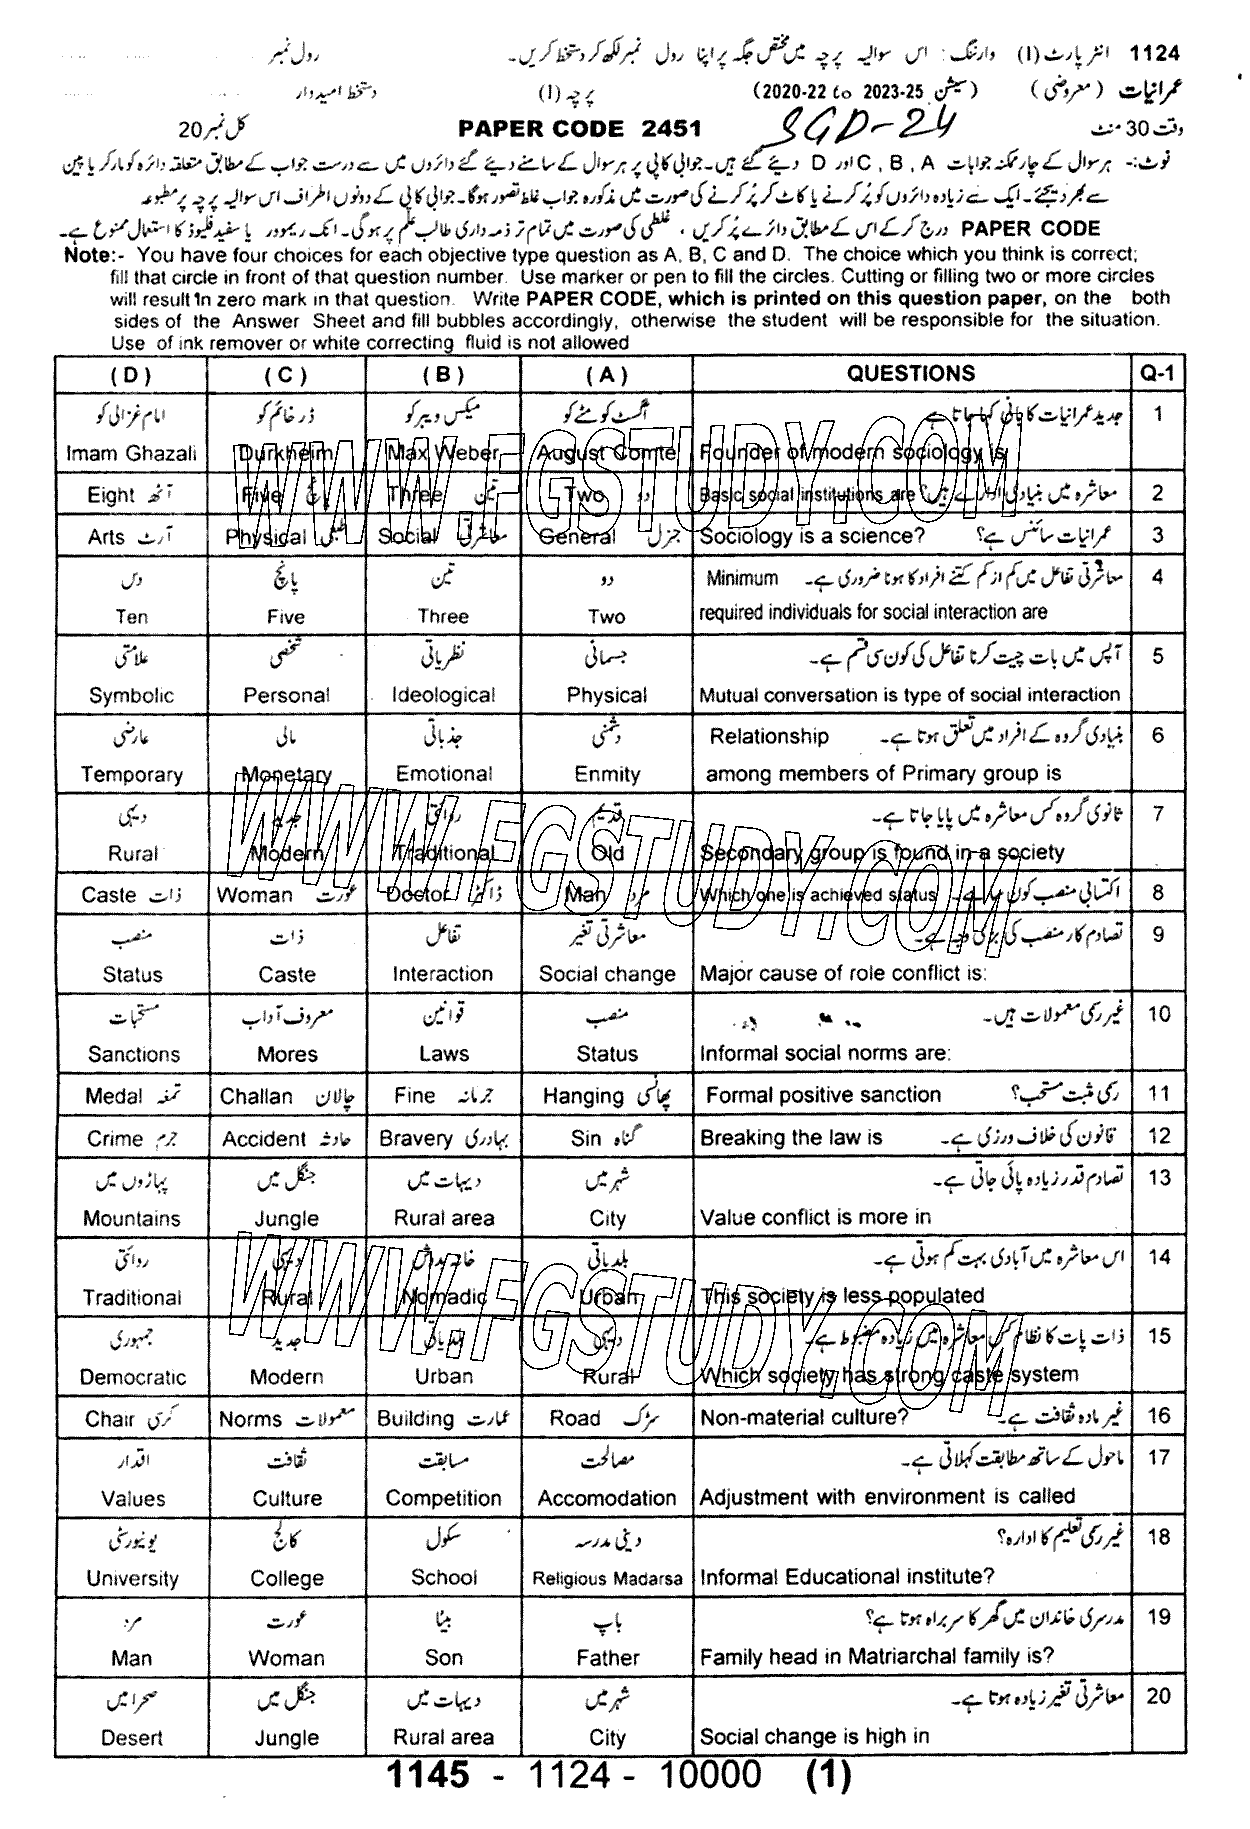 1124 انٹر پارٹ (I) وارننگ: اس سوالیہ پرچہ میں مختص جگہ پر اپنا رول نمبر لکھ کر دستخط کریں۔ رول نمبر
عمرانیات (معروضی) (سیشن 2020-22 to 2023-25) پرچہ (I) دستخط امیدوار
وقت 30 منٹ SGD-24 PAPER CODE 2451 کل نمبر 20
نوٹ:- ہر سوال کے چار ممکنہ جوابات A , B , C اور D دیئے گئے ہیں۔ جوابی کاپی پر ہر سوال کے سامنے دیئے گئے دائروں میں سے درست جواب کے مطابق متعلقہ دائرہ کو مارکر یا پین
سے بھر دیجئے۔ ایک سے زیادہ دائروں کو پُر کرنے یا کاٹ کر پُر کرنے کی صورت میں مذکورہ جواب غلط تصور ہوگا۔ جوابی کاپی کے دونوں اطراف اس سوالیہ پرچہ پر مطبوعہ
PAPER CODE درج کرکے اس کے مطابق دائرے پُر کریں، غلطی کی صورت میں تمام تر ذمہ داری طالب علم پر ہوگی۔ انک ریموور یا سفید فلیوڈ کا استعمال ممنوع ہے۔
Note:- You have four choices for each objective type question as A, B, C and D. The choice which you think is correct;
fill that circle in front of that question number. Use marker or pen to fill the circles. Cutting or filling two or more circles
will result in zero mark in that question. Write PAPER CODE, which is printed on this question paper, on the both
sides of the Answer Sheet and fill bubbles accordingly, otherwise the student will be responsible for the situation.
Use of ink remover or white correcting fluid is not allowed
(D) (C) (B) (A) QUESTIONS Q-1
امام غزالی کو ڈر خائم کو میکس ویبر کو آگسٹ کومٹے کو جدید عمرانیات کا بانی کہا جاتا ہے 1
Imam Ghazali Durkheim Max Weber August Comte Founder of modern sociology is
Eight آٹھ Five پانچ Three تین Two دو Basic social institutions are معاشرہ میں بنیادی ادارے ہیں؟ 2
Arts آرٹ Physical طبعی Social معاشرتی General جنرل Sociology is a science? عمرانیات سائنس ہے؟ 3
دس پانچ تین دو Minimum معاشرتی تفاعل میں کم از کم کتنے افراد کا ہونا ضروری ہے۔ 4
Ten Five Three Two required individuals for social interaction are
علامتی شخصی نظریاتی جسمانی آپس میں بات چیت کرنا تفاعل کی کون سی قسم ہے۔ 5
Symbolic Personal Ideological Physical Mutual conversation is type of social interaction
عارضی مالی جذباتی دشمنی Relationship بنیادی گروہ کے افراد میں تعلق ہوتا ہے۔ 6
Temporary Monetary Emotional Enmity among members of Primary group is
دیہی جدید روائتی قدیم ثانوی گروہ کس معاشرہ میں پایا جاتا ہے۔ 7
Rural Modern Traditional Old Secondary group is found in a society
Caste ذات Woman عورت Doctor ڈاکٹر Man مرد Which one is achieved status اکتسابی منصب کون سا ہے۔ 8
منصب ذات تفاعل معاشرتی تغیر تصادم کار منصب کی بڑی وجہ ہے۔ 9
Status Caste Interaction Social change Major cause of role conflict is:
مستحبات معروف آداب قوانین منصب غیر رسمی معمولات ہیں۔ 10
Sanctions Mores Laws Status Informal social norms are:
Medal تمغہ Challan چالان Fine جرمانہ Hanging پھانسی Formal positive sanction رسمی مثبت مستحب؟ 11
Crime جرم Accident حادثہ Bravery بہادری Sin گناہ Breaking the law is قانون کی خلاف ورزی ہے۔ 12
پہاڑوں میں جنگل میں دیہات میں شہر میں تصادم قدر زیادہ پائی جاتی ہے۔ 13
Mountains Jungle Rural area City Value conflict is more in
روائتی دیہی خانہ بدوش بلدیاتی اس معاشرہ میں آبادی بہت کم ہوتی ہے۔ 14
Traditional Rural Nomadic Urban This society is less populated
جمہوری جدید بلدیاتی دیہی ذات پات کا نظام کس معاشرہ میں زیادہ مضبوط ہے۔ 15
Democratic Modern Urban Rural Which society has strong caste system
Chair کرسی Norms معمولات Building عمارت Road سڑک Non-material culture? غیر مادہ ثقافت ہے۔ 16
اقدار ثقافت مسابقت مصالحت ماحول کے ساتھ مطابقت کہلاتی ہے۔ 17
Values Culture Competition Accomodation Adjustment with environment is called
یونیورسٹی کالج سکول دینی مدرسہ غیر رسمی تعلیم کا ادارہ؟ 18
University College School Religious Madarsa Informal Educational institute?
مرد عورت بیٹا باپ مدرسری خاندان میں گھر کا سربراہ ہوتا ہے؟ 19
Man Woman Son Father Family head in Matriarchal family is?
صحرا میں جنگل میں دیہات میں شہر میں معاشرتی تغیر زیادہ ہوتا ہے۔ 20
Desert Jungle Rural area City Social change is high in
1145 - 1124 - 10000 (1)
WWW.FGSTUDY.COM
WWW.FGSTUDY.COM
WWW.FGSTUDY.COM